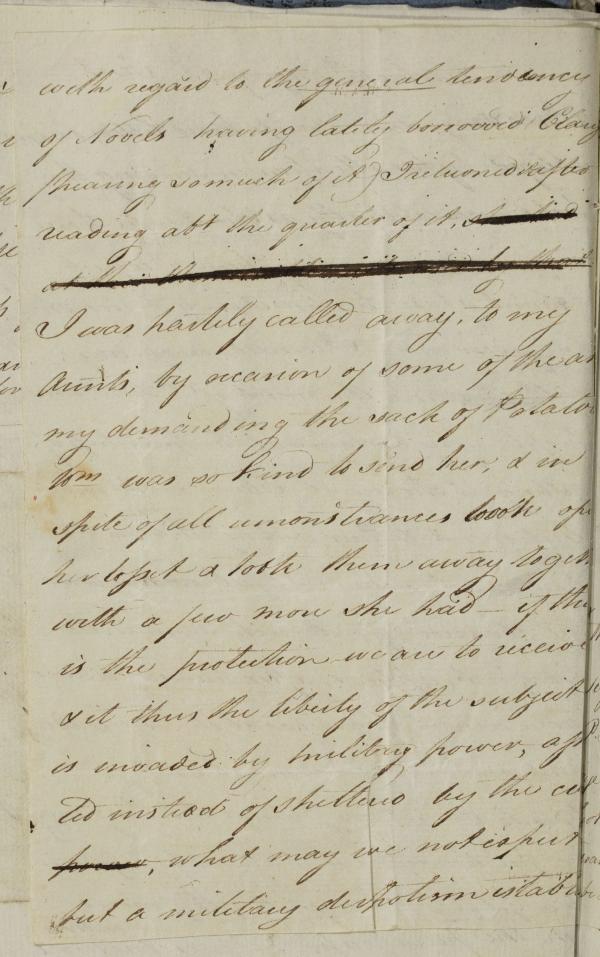 with regard to the general tendency
of Novels having lately borrowed
(hearing so much of it) I returned after
reading abt the quarter of it,
I was hastily called away, to my
Aunts, by occasion of some of the
my demanding the sack of
Wm was so kind to send her, & in
spite of all remonstrances
her closet & took them away
with a few more she had — if
is the protection we are to receive
& if thus the liberty of the subject
is invaded by military power,
ted instead of sheltered by the
power, what may we not expect
but a military despotism